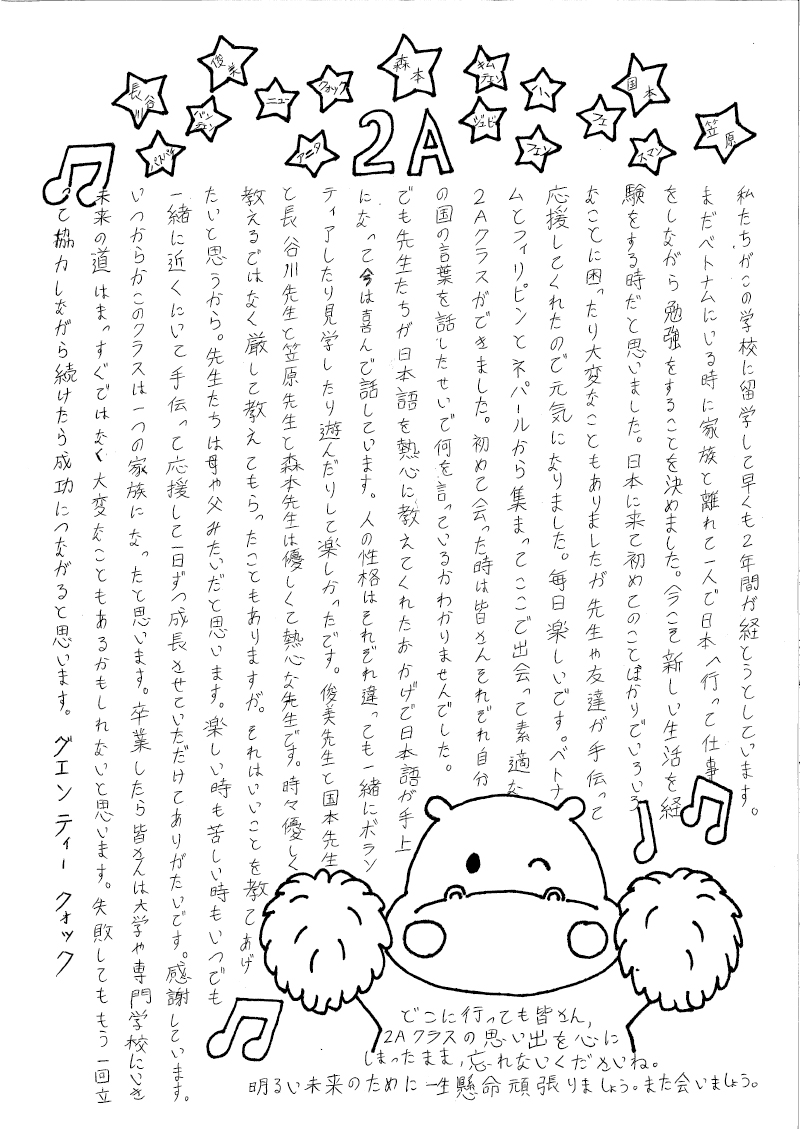 俊美
森本
キム
チェン
国本
長谷川
バン
チェン
ニュー
クォック
ジュビ
ハ
フェ
笠原
パスパチ
アニタ
2A
フェン
スマン
私たちがこの学校に留学して早くも2年間が経とうとしています。
まだベトナムにいる時に家族と離れて一人で日本へ行って仕事
をしながら勉強をすることを決めました。今こそ新しい生活を経
験をする時だと思いました。日本に来て初めてのことばかりでいろいろ
なことに困ったり大変なこともありましたが先生や友達が手伝って
応援してくれたので元気になりました。毎日楽しいです。ベトナ
ムとフィリピンとネパールから集まってここで出会って素適な
2Aクラスができました。初めて会った時は皆さんそれぞれ自分
の国の言葉を話したせいで何を言っているかわかりませんでした。
でも先生たちが日本語を熱心に教えてくれたおかげで日本語が手上
になって今は喜んで話しています。人の性格はそれぞれ違っても一緒にボラン
ティアしたり見学したり遊んだりして楽しかったです。俊美先生と国本先生
と長谷川先生と笠原先生と森本先生は優しくて熱心な先生です。時々優しく
教えるではなく厳して教えてもらったこともありますが。それはいいことを教てあげ
たいと思うから。先生たちは母や父みたいだと思います。楽しい時も苦しい時もいつでも
一緒に近くにいて手伝って応援して一日ずつ成長させていただけてありがたいです。感謝しています。
いつからかこのクラスは一つの家族になったと思います。卒業したら皆さんは大学や専門学校にいき
未来の道はまっすぐではなく大変なこともあるかもしれないと思います。失敗してももう一回立
って協力しながら続けたら成功につながると思います。 グエン ティー クォック
どこに行っても皆さん,
2Aクラスの思い出を心に
しまったまま,忘れないくださいね。
明るい未来のために一生懸命頑張りましょう。また会いましょう。